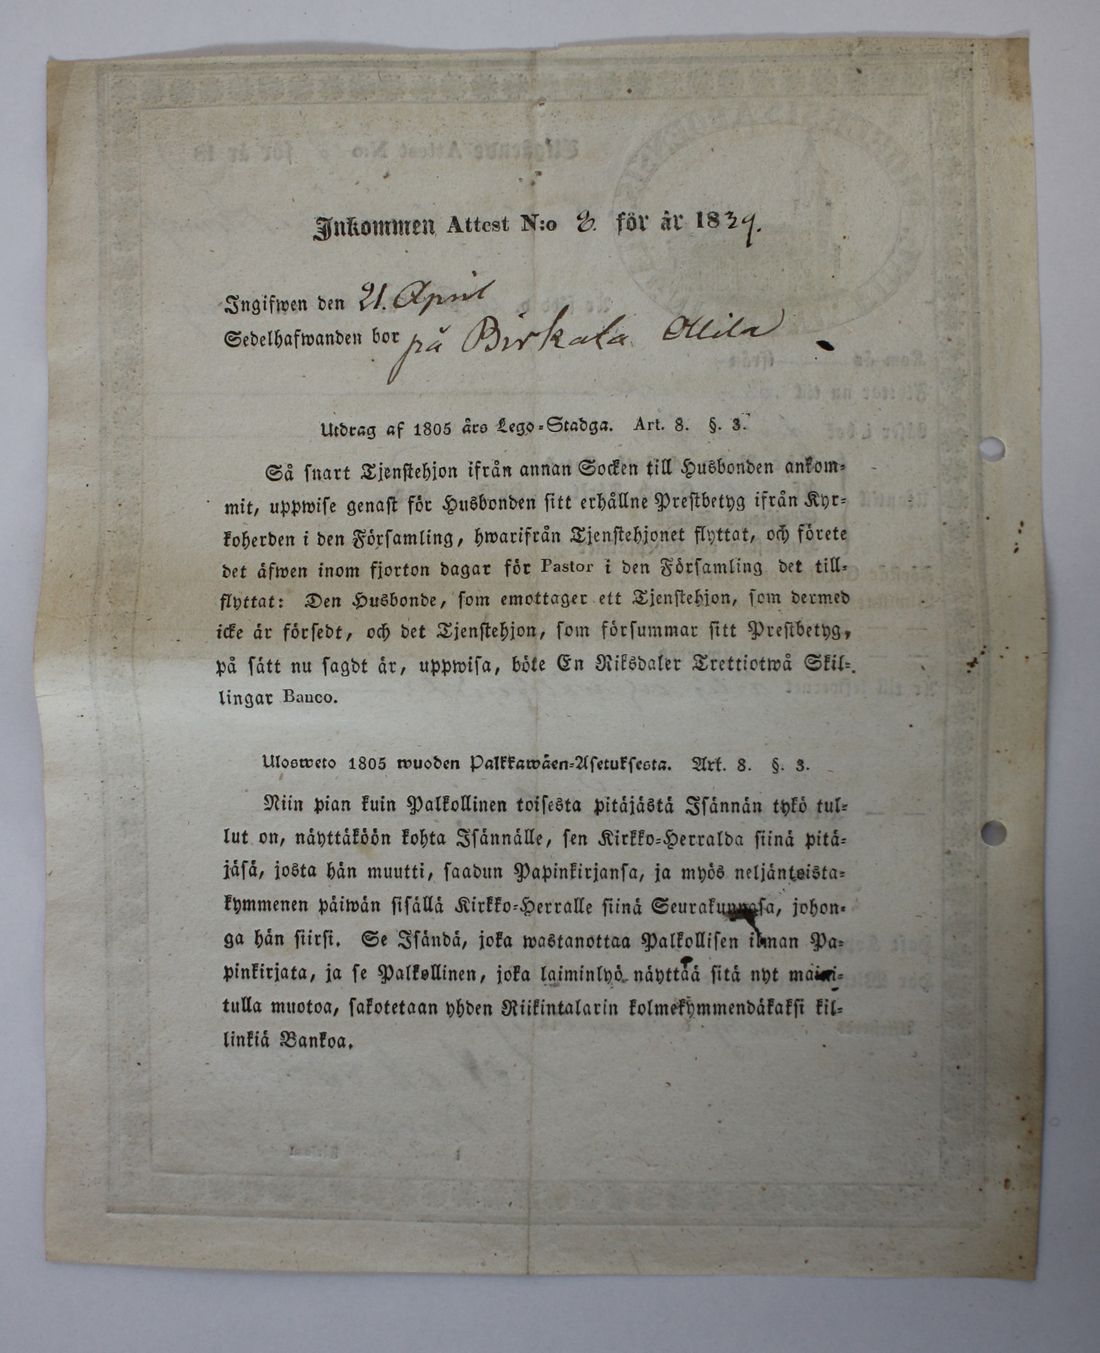 Inkommen Attest N:o 3. för år 1839.
Ingifwen den 21. April
Sedelhafwanden bor på Birkala Ollila
Utdrag af 1805 års Lego-Stadga. Art. 8. §. 3.
Så snart Tjenstehjon ifrån annan Socken till Husbonden ankom-
mit, uppwise genast för Husbonden sitt erhållne Prestbetyg ifrån Kyr-
koherden i den Församling, hwarifrån Tjenstehjonet flyttat, och förete
det äfwen inom fjorton dagar för Pastor i den Församling det till-
flyttat: Den Husbonde, som emottager ett Tjenstehjon, som dermed
icke är försedt, och det Tjenstehjon, som försummar sitt Prestbetyg,
på sätt nu sagdt är, uppwisa, böte En Riksdaler Trettiotwå Skil-
lingar Banco.
Ulosweto 1805 wuoden Palkkawäen-Asetuksesta. Art. 8. §. 3.
Niin pian kuin Palkollinen toisesta pitäjästä Isännän tykö tul-
lut on, näyttäköön kohta Isännälle, sen Kirkko-Herralda siinä pitä-
jäsä, josta hän muutti, saadun Papinkirjansa, ja myös neljäntoista-
kymmenen päiwän sisällä Kirkko-Herralle siinä Seurakunnasa, johon-
ga hän siirsi. Se Isändä, joka wastanottaa Palkollisen ilman Pa-
pinkirjata, ja se Palkollinen, joka laiminlyö näyttää sitä nyt maini-
tulla muotoa, sakotetaan yhden Riikintalarin kolmekymmendäkaksi kil-
linkiä Bankoa.